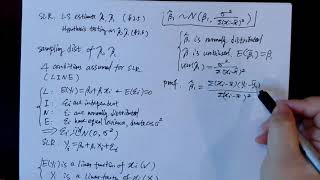 SLR. LS estimate β̂₀ β̂₁ (§2.2)
Hypothesis testing on β̂₀ β̂₁ (§2.3)
sampling dist of β̂₀, β̂₁
4 conditions assumed for SLR
(LINE)
L: E(Yi) = β₀ + β₁xi ← E(εi) = 0
I: εi are independent
N: εi are normally distributed
E: εi have equal variances, denote as σ²
⇒ εi ~ N(0, σ²)
SLR: Yi = β₀ + β₁xi + εi
E(Yi) is a linear function of xi (✓)
Y is a linear function of X (✗)
β̂₁ ~ N(β₁, σ²/Σ(xi-x̄)²)
β̂₁ is normally distributed
β̂₁ is unbiased, E(β̂₁) = β₁
var(β̂₁) = σ²/Σ(xi-x̄)²
proof. β̂₁ = Σ(xi-x̄)(yi-ȳ)/Σ(xi-x̄)²